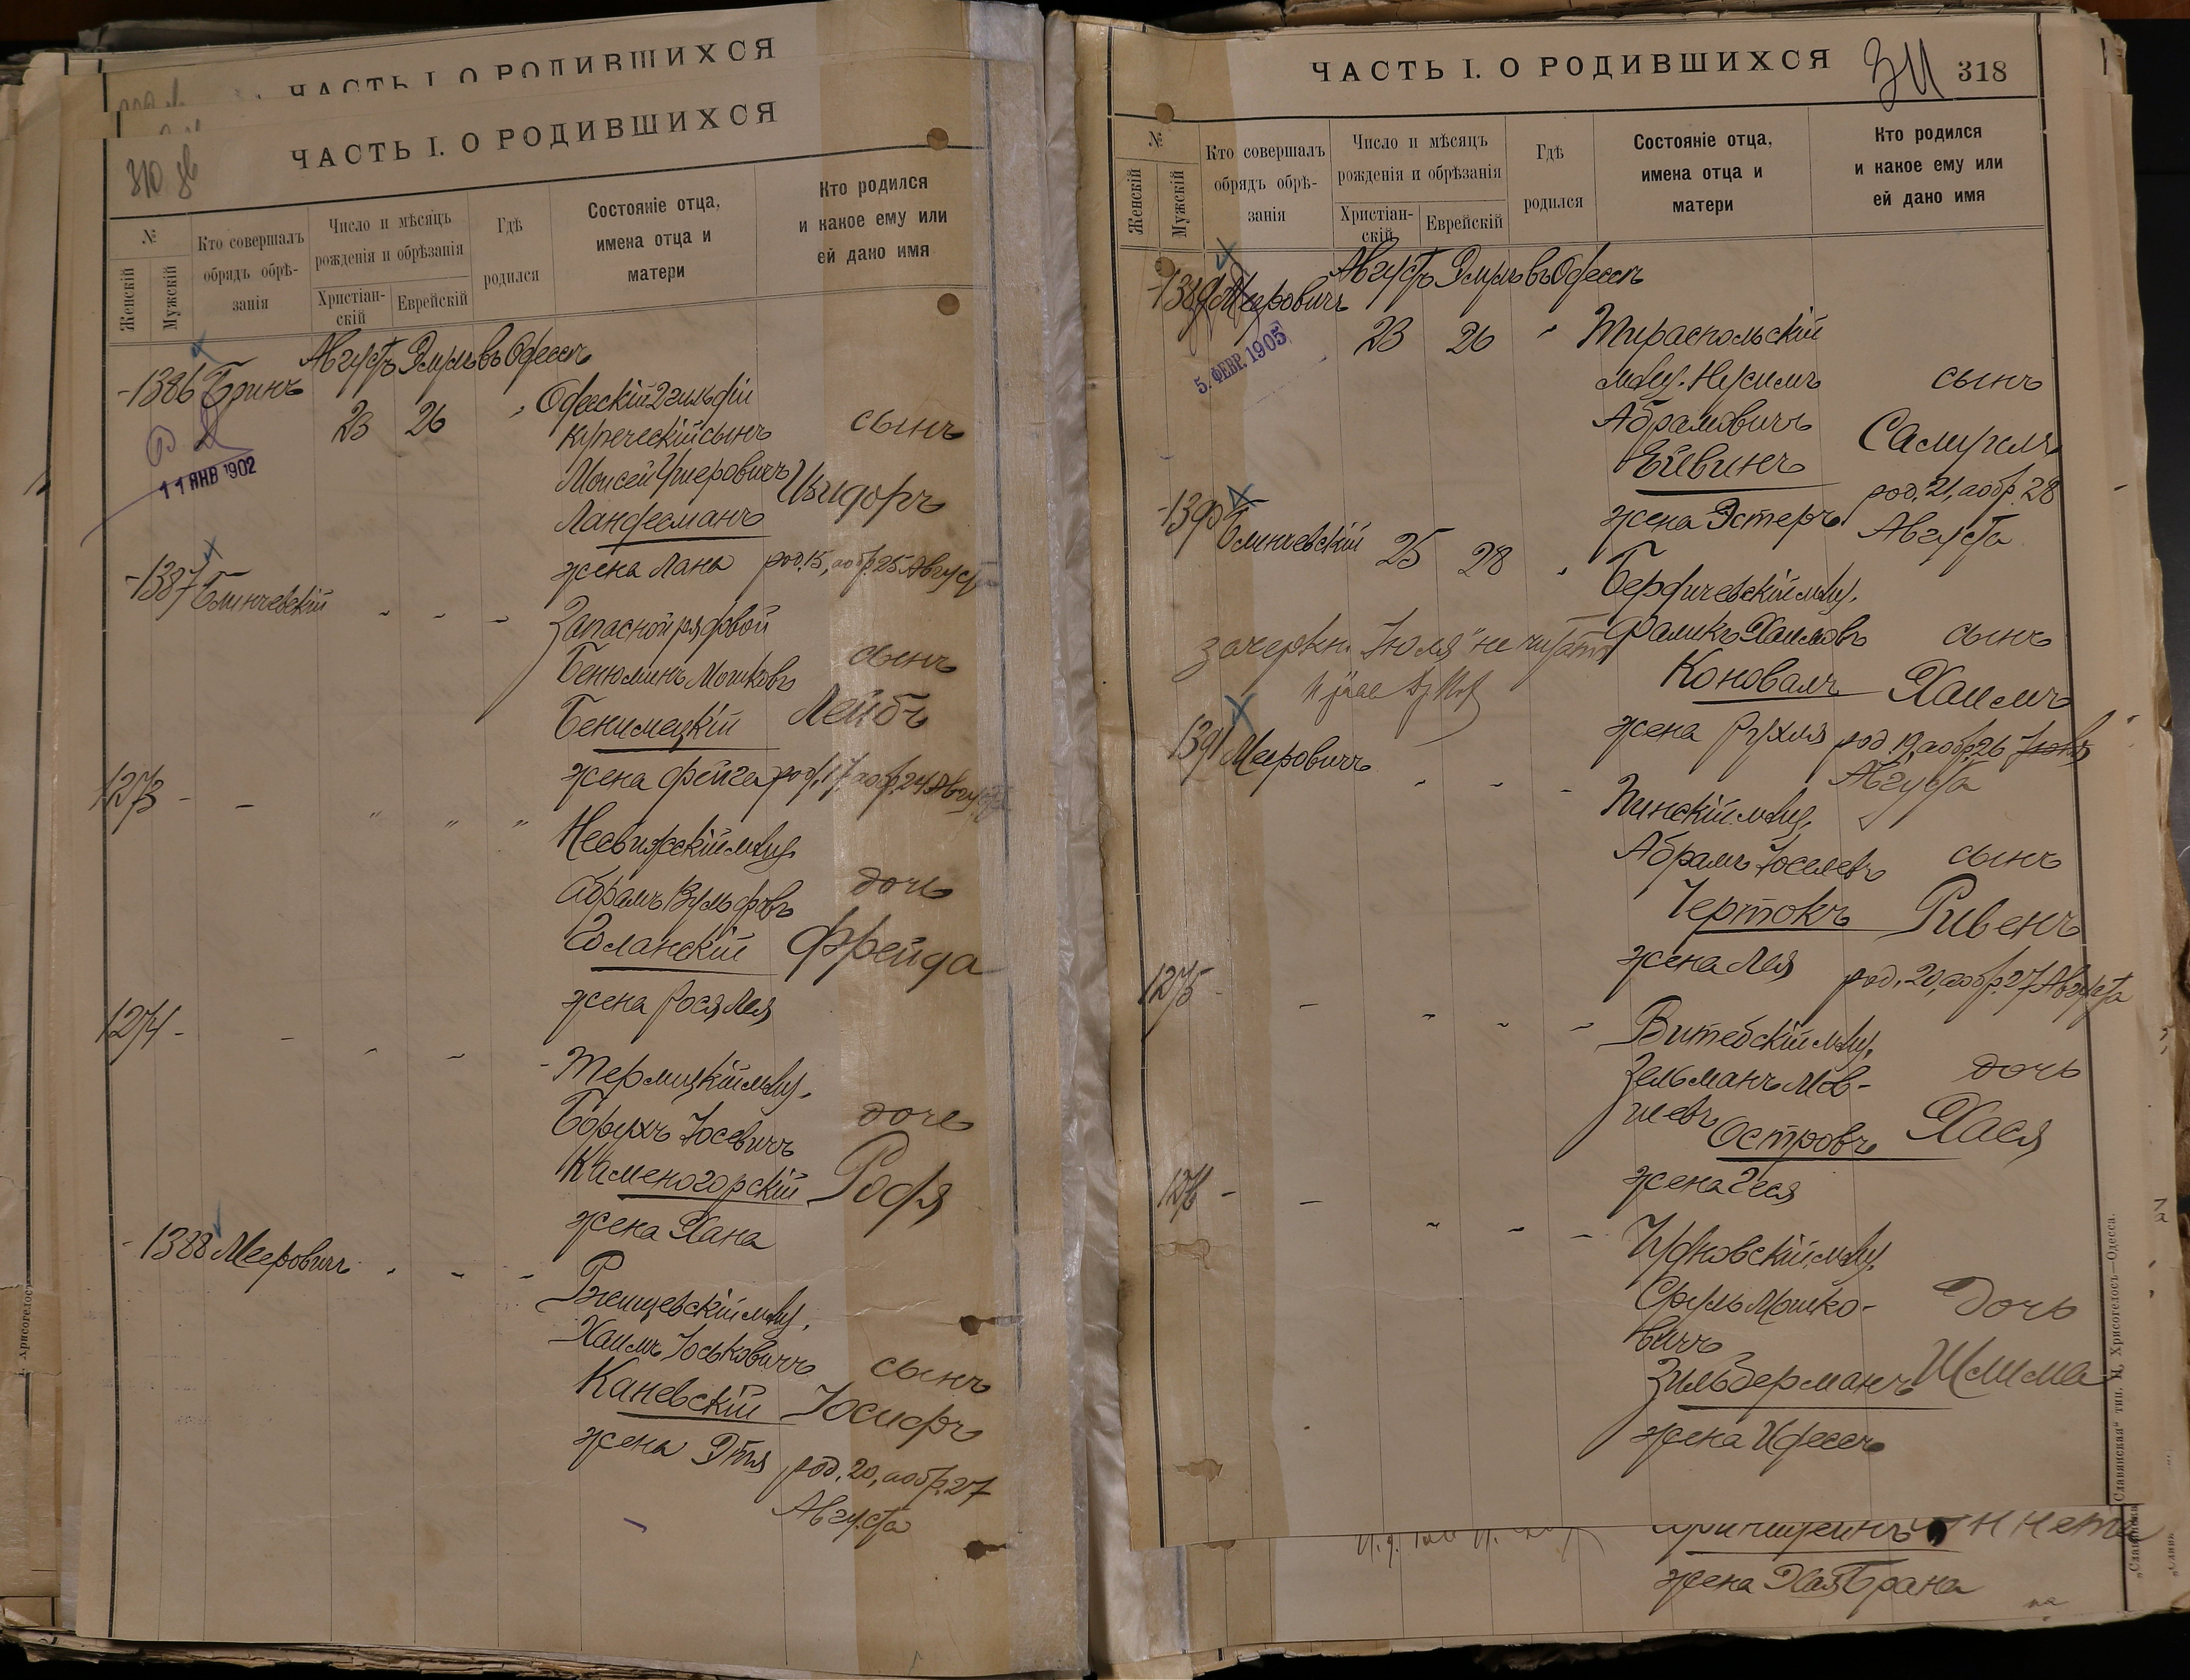 ЧАСТЬ I. О РОДИВШИХСЯ
ЧАСТЬ I. О РОДИВШИХСЯ
310 зв
№
Женскій
Мужскій
Кто совершалъ
обрядъ обрѣ-
занія
Число и мѣсяцъ
рожденія и обрѣзанія
Христіан-
скій
Еврейскій
Гдѣ
родился
Состояніе отца,
имена отца и
матери
Кто родился
и какое ему или
ей дано имя
Августъ Элулъ въ Одессѣ
1386 Бринъ
23 26 "
Одесскій 2 гильдіи
купеческій сынъ
Моисей
Ландесманъ
жена Хана
сынъ
Изидоръ
род. 15, а обр. 25 Августа
11 ЯНВ 1902
1387 Блинчевскій
Запасной рядовой
Бенюминъ Мошковъ
Бенимецкій
жена Фейга
сынъ
Лейбъ
род. 17, а обр. 24 Августа
1273 - - " " "
Несвижскій мѣщ.
Абрамъ Вульфовъ
Голанскій
жена Рося Лея
дочь
Фрейда
1274 -
мѣщ.
Борухъ Іосевичъ
Каменогорскій
жена Хана
дочь
Родя
1388 Мееровичъ
Ржищевскій мѣщ.
Хаимъ Іоськовичъ
Каневскій
жена Этя
сынъ
Іосифъ
род. 20, а обр. 27
Августа
ЧАСТЬ I. О РОДИВШИХСЯ
311 318
№
Женскій
Мужскій
Кто совершалъ
обрядъ обрѣ-
занія
Число и мѣсяцъ
рожденія и обрѣзанія
Христіан-
скій
Еврейскій
Гдѣ
родился
Состояніе отца,
имена отца и
матери
Кто родился
и какое ему или
ей дано имя
Августъ Элулъ въ Одессѣ
1389 Мееровичъ
23 26 "
5. ФЕВР. 1905
Тираспольскій
мѣщ. Нусимъ
Абрамовичъ
Ейвинъ
жена Эстеръ
сынъ
Самуилъ
род. 21, а обр. 28
Августа
1390 Блинчевскій 25 28 "
Бердичевскій мѣщ.
Фаликъ Хаимовъ
Коновалъ
жена Рухля
сынъ
Хаимъ
род. 19, а обр. 26 Іюля
Августа
зачеркн. "Іюля" не читать
1391 Мееровичъ
Пинскій мѣщ.
Абрамъ Іоселевъ
Чертокъ
жена Лея
сынъ
Рувенъ
род. 20, а обр. 27 Августа
1275 - -
Витебскій мѣщ.
Зельманъ Мов-
шевъ Островъ
жена Геся
дочь
Хася
1276 - -
Чудновскій мѣщ.
Сруль Мошко-
вичъ
Зильберманъ
жена Идессъ
дочь
Шлима
жена Хая Брана
„Славянская“ тип. Н. Хрисогелосъ—Одесса.